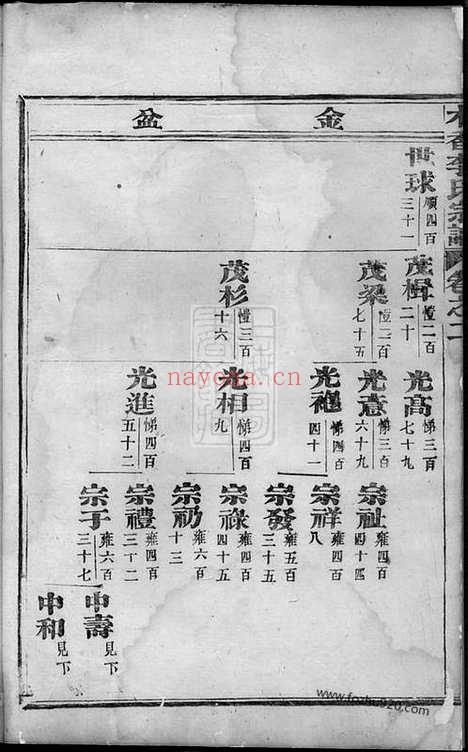 李氏宗譜
卷之二
金盆
世球 順四百三十一
茂楫 二百二十
茂桑 二百七十五
茂杉 三百十六
光高 悌三百七十九
光意 悌三百六十九
光袍 悌四百四十一
光相 悌四百九
光進 悌四百五十二
宗祉 雍四百四十四
宗祥 雍四百八
宗發 雍五百三十五
宗祿 雍四百四十五
宗礽 雍六百十三
宗禮 雍四百三十二
宗于 雍六百三十七
中壽 見下
中和 見下
nayona.cn
www.fozhu920.com